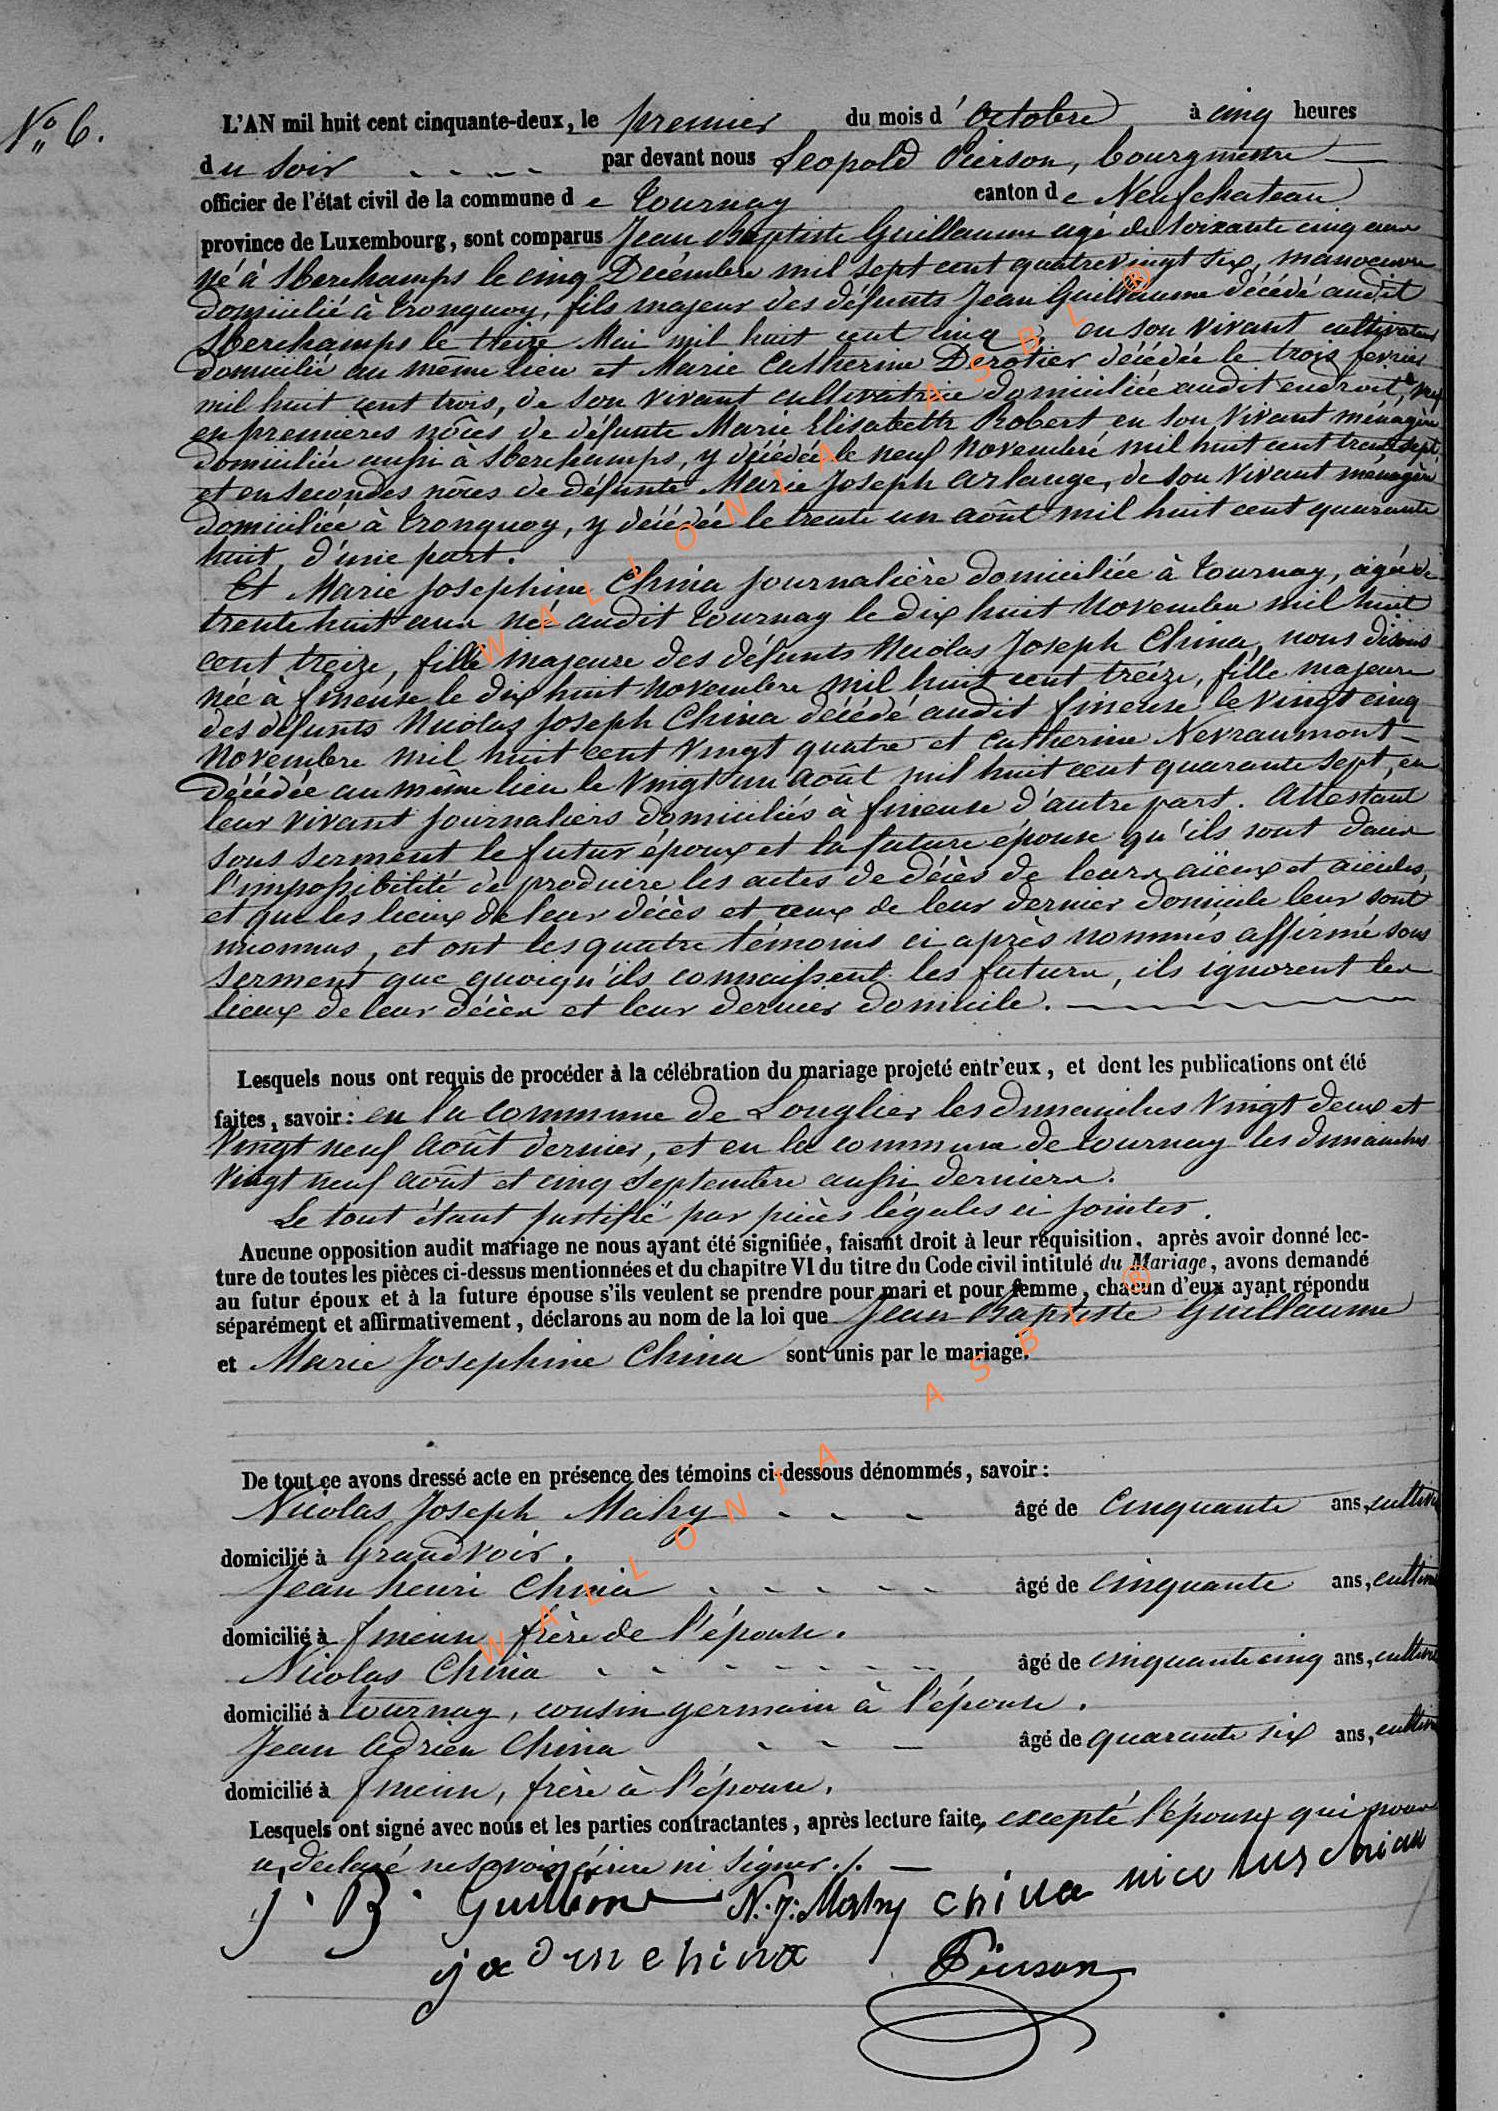 N° 6.
L'AN mil huit cent cinquante-deux, le premier du mois d' octobre à cinq heures
du soir par devant nous Leopold Pierson, bourgmestre
officier de l'état civil de la commune de Tournay canton de Neufchateau
province de Luxembourg, sont comparus Jean Baptiste Guillaume agé de soixante cinq ans
né à Sberchamps le cinq Décembre mil sept cent quatrevingt six, manoeuvre
domicilié à Tronquoy, fils majeur des défunts Jean Guillaume décédé audit
Sberchamps le treize Mai mil huit cent cinq en son vivant cultivateur
domicilié au même lieu et Marie Catherine Derotier décédée le trois fevrier
mil huit cent trois, de son vivant cultivatrice domiciliée audit endroit, veuf
en premières nôces de défunte Marie Elisabeth Robert en son vivant ménagère
domiciliée aussi à Sberchamps, y décédée le neuf Novembre mil huit cent trente sept
et en secondes nôces de défunte Marie Joseph Arlange, de son vivant menagère
domiciliée à Tronquoy, y décédée le trente un août mil huit cent quarante
huit, d'une part.
Et Marie Josephine China journalière domiciliée à Tournay, agée de
trente huit ans né audit Tournay le dix huit Novembre mil huit
cent treize, fille majeure des défunts Nicolas Joseph China, nous disons
née à fineuse le dix huit novembre mil huit cent treize, fille majeure
des défunts Nicolas Joseph China décédé audit fineuse le vingt cinq
Novembre mil huit cent vingt quatre et Catherine Nevraumont
décédée au même lieu le vingt un août mil huit cent quarante sept, en
leur vivant journaliers domiciliés à fineuse d'autre part. Attestant
sous serment le futur époux et la future épouse qu'ils sont dans
l'impossibilité de produire les actes de décès de leurs aïeux et aïeules,
et que les lieux de leur décès et ceux de leur dernier domicile leur sont
inconnus, et ont les quatre témoins ci après nommés affirmé sous
serment que quoiqu'ils connaissent les futurs, ils ignorent les
lieux de leur décès et leur dernier domicile.
Lesquels nous ont requis de procéder à la célébration du mariage projeté entr'eux, et dont les publications ont été
faites, savoir: en la commune de Longlier les dimanches vingt deux et
vingt neuf août dernier, et en la commune de Tournay les dimanches
vingt neuf août et cinq septembre aussi derniers.
Le tout étant justifié par pièces légales ci jointes.
Aucune opposition audit mariage ne nous ayant été signifiée, faisant droit à leur réquisition, après avoir donné lec-
ture de toutes les pièces ci-dessus mentionnées et du chapitre VI du titre du Code civil intitulé du Mariage, avons demandé
au futur époux et à la future épouse s'ils veulent se prendre pour mari et pour femme, chacun d'eux ayant répondu
séparément et affirmativement, déclarons au nom de la loi que Jean Baptiste Guillaume
et Marie Josephine China sont unis par le mariage.
De tout ce avons dressé acte en présence des témoins ci-dessous dénommés, savoir:
Nicolas Joseph Mahy âgé de Cinquante ans, cultiv
domicilié à Grandvoir.
Jean henri China âgé de cinquante ans, cultiv
domicilié à fineuse frère de l'épouse.
Nicolas China âgé de cinquante cinq ans, cultiv
domicilié à tournay, cousin germain à l'épouse.
Jean Adrien China âgé de quarante six ans, cultiv
domicilié à fineuse, frère à l'épouse.
Lesquels ont signé avec nous et les parties contractantes, après lecture faite, excepté l'épouse qui nous
a déclaré ne savoir écrire ni signer./.
J. B. Guillaume N. J. Mahy China nicolus chinau
Pierson
WALLONIA ASBL ®
WALLONIA ASBL ®